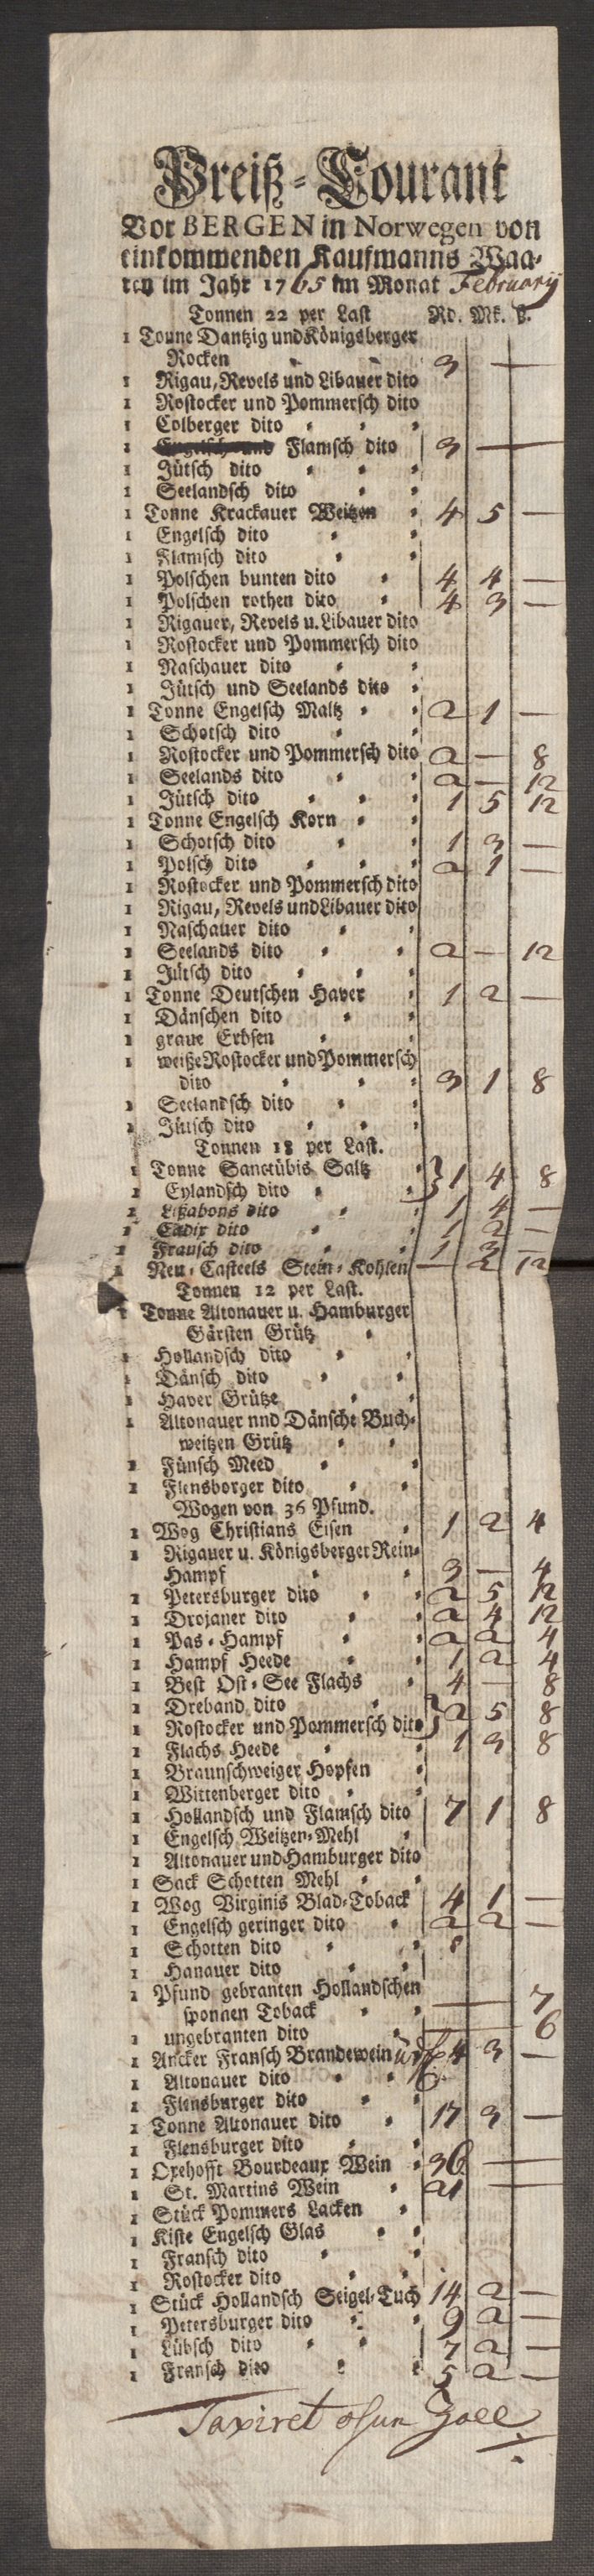 Preiß-Courant
Vor BERGEN in Norwegen von
einkommenden Kaufmanns Waa-
ren im Jahr 1765 im Monat Februarij
Tonnen 22 per Last Rd. Mk. ß.
1 Tonne Dantzig und Königsberger
Rocken 3 —
1 Rigau, Revels und Libauer dito
1 Rostocker und Pommersch dito
1 Colberger dito
1 Flamsch dito 3 —
1 Jütsch dito
1 Seelandsch dito
1 Tonne Krackauer Weitzen 4 5 —
1 Engelsch dito
1 Flamsch dito
1 Polschen bunten dito 4 4 —
1 Polschen rothen dito 4 3 —
1 Rigauer, Revels u. Libauer dito
1 Rostocker und Pommersch dito
1 Naschauer dito
1 Jütsch und Seelands dito
1 Tonne Engelsch Maltz 2 1 —
1 Schotsch dito
1 Rostocker und Pommersch dito 2 — 8
1 Seelands dito 2 — 12
1 Jütsch dito 1 5 12
1 Tonne Engelsch Korn
1 Schotsch dito 1 3 —
1 Polsch dito 2 1 —
1 Rostocker und Pommersch dito
1 Rigau, Revels und Libauer dito
1 Naschauer dito
1 Seelands dito 2 — 12
1 Jütsch dito
1 Tonne Deutschen Haver 1 2 —
1 Dänschen dito
1 graue Erbsen
1 weiße Rostocker und Pommersch
dito 3 1 8
1 Seelandsch dito
1 Jütsch dito
Tonnen 18 per Last.
1 Tonne Sanctübis Saltz } 1 4 8
1 Eylandsch dito
1 Lißabons dito 1 4 —
1 Cadix dito 1 2 —
1 Fransch dito 1 3 —
1 Neu-Casteels Stein-Kohlen — 2 12
Tonnen 12 per Last.
1 Tonne Altonauer u. Hamburger
Gärsten Grütz
1 Hollandsch dito
1 Dänsch dito
1 Haver Grütze
1 Altonauer nnd Dänsche Buch-
weitzen Grütz
1 Fünsch Meed
1 Flensborger dito
Wogen von 36 Pfund.
1 Wog Christians Eisen 1 2 4
1 Rigauer u. Königsberger Rein-
Hampf 3 — 4
1 Petersburger dito 2 5 12
1 Drojaner dito 2 4 12
1 Pas-Hampf 2 2 4
1 Hampf Heede 1 2 4
1 Best Ost-See Flachs 4 — 8
1 Dreband dito } 2 5 8
1 Rostocker und Pommersch dito
1 Flachs Heede 1 3 8
1 Braunschweiger Hopfen
1 Wittenberger dito
1 Hollandsch und Flamsch dito 7 1 8
1 Engelsch Weitzen-Mehl
1 Altonauer und Hamburger dito
1 Sack Schotten Mehl
1 Wog Virginis Blad-Toback 4 1 —
1 Engelsch geringer dito 2 2 —
1 Schotten dito
1 Hanauer dito
1 Pfund gebranten Hollandschen
sponnen Toback — 7
1 ungebranten dito — 6
1 Ancker Fransch Brandewein 4 3 —
1 Altonauer dito
1 Flensburger dito
1 Tonne Altonauer dito 17 3 —
1 Flensburger dito
1 Oxehofft Bourdeaux Wein 36 —
1 St. Martins Wein 21 —
1 Stück Pommers Lacken
1 Kiste Engelsch Glas
1 Fransch dito
1 Rostocker dito
1 Stück Hollandsch Seigel-Tuch 14 2 —
1 Petersburger dito 9 2 —
1 Lübsch dito 7 2 —
1 Fransch dito 5 2 —
Taxiret ohne Zoll